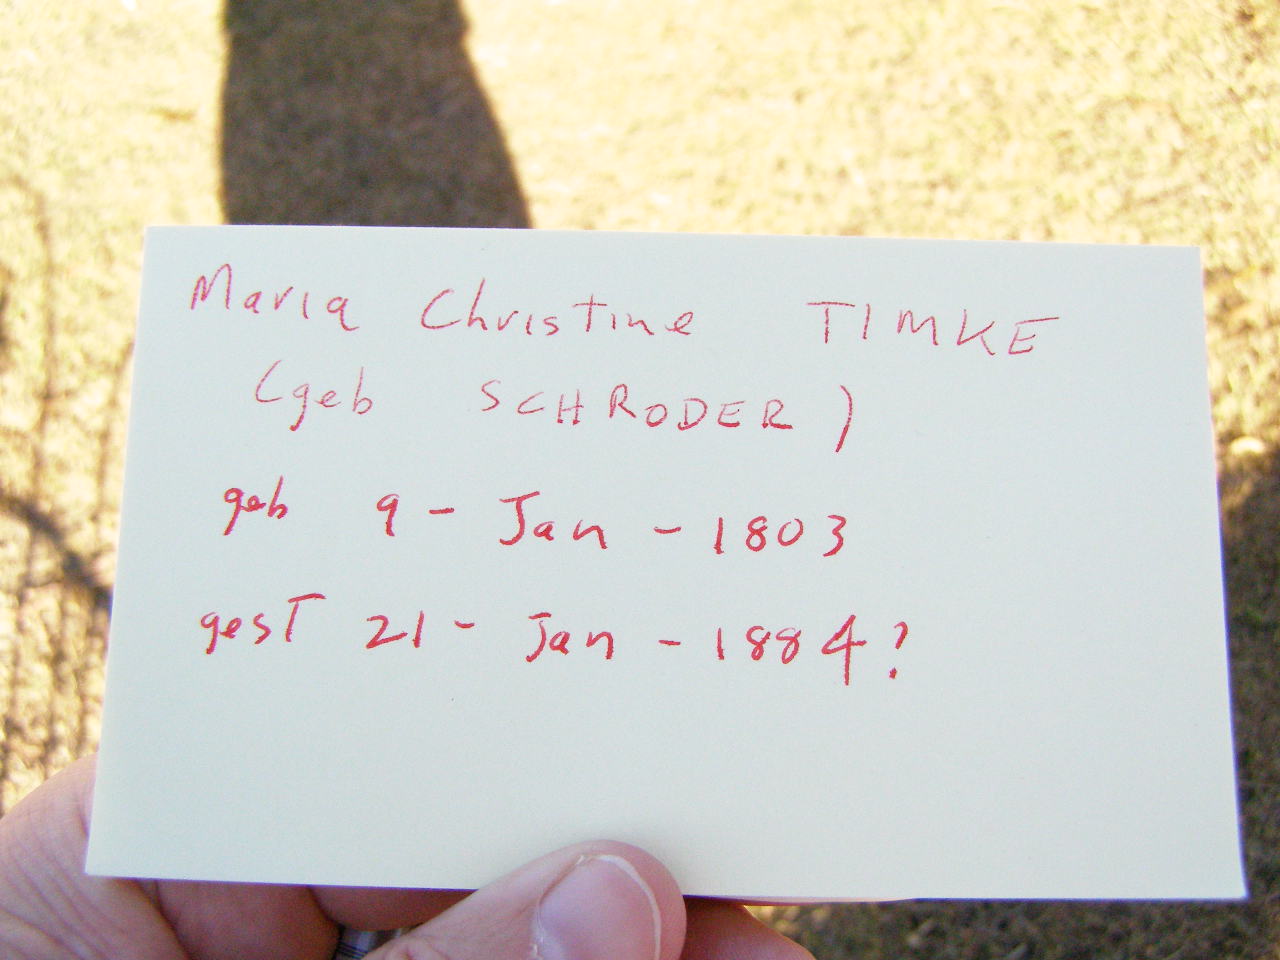 Maria Christine TIMKE
(geb SCHRODER)
geb 9 - Jan - 1803
gest 21 - Jan - 1884?